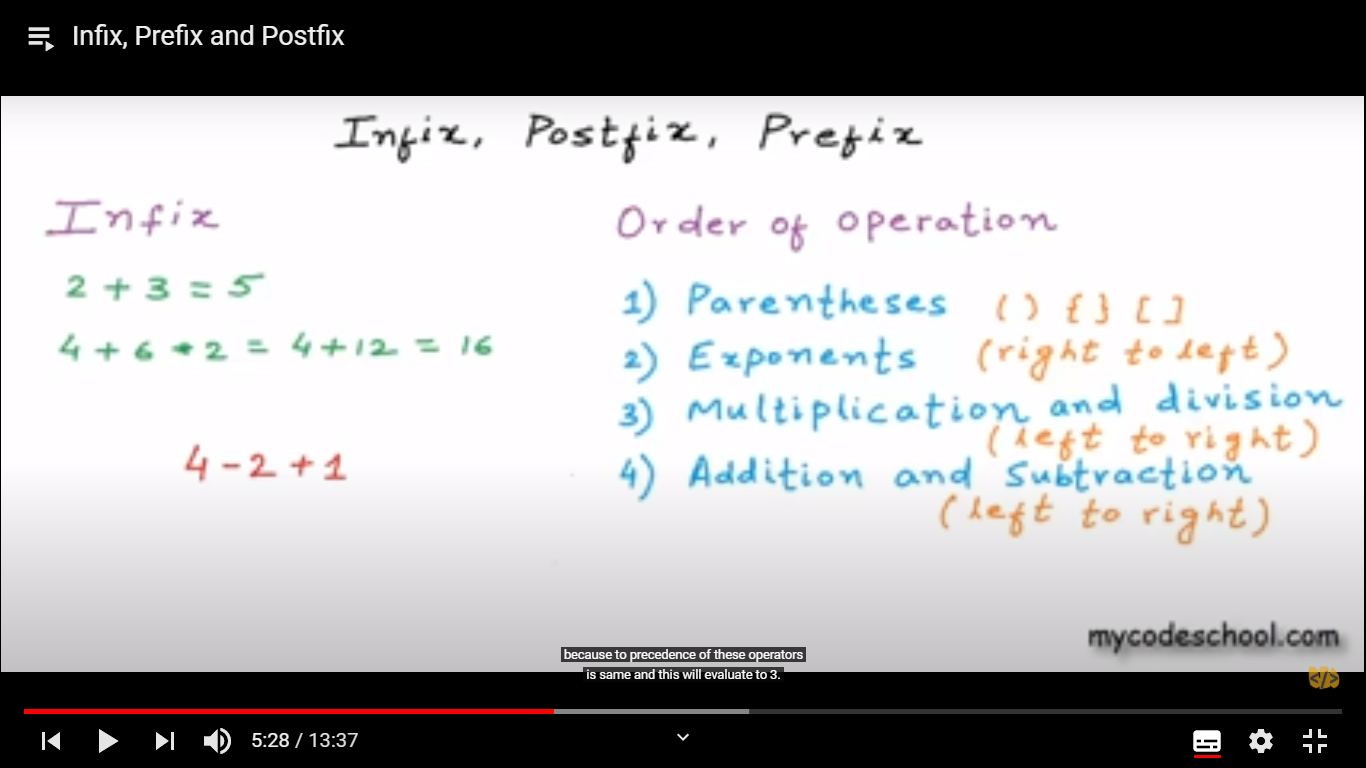 Infix, Prefix and Postfix
Infix, Postfix, Prefix
Infix
2 + 3 = 5
4 + 6 * 2 = 4 + 12 = 16
4 - 2 + 1
Order of operation
1) Parentheses ( ) { } [ ]
2) Exponents (right to left)
3) Multiplication and division
(left to right)
4) Addition and Subtraction
(left to right)
mycodeschool.com
because to precedence of these operators
is same and this will evaluate to 3.
</>
5:28 / 13:37